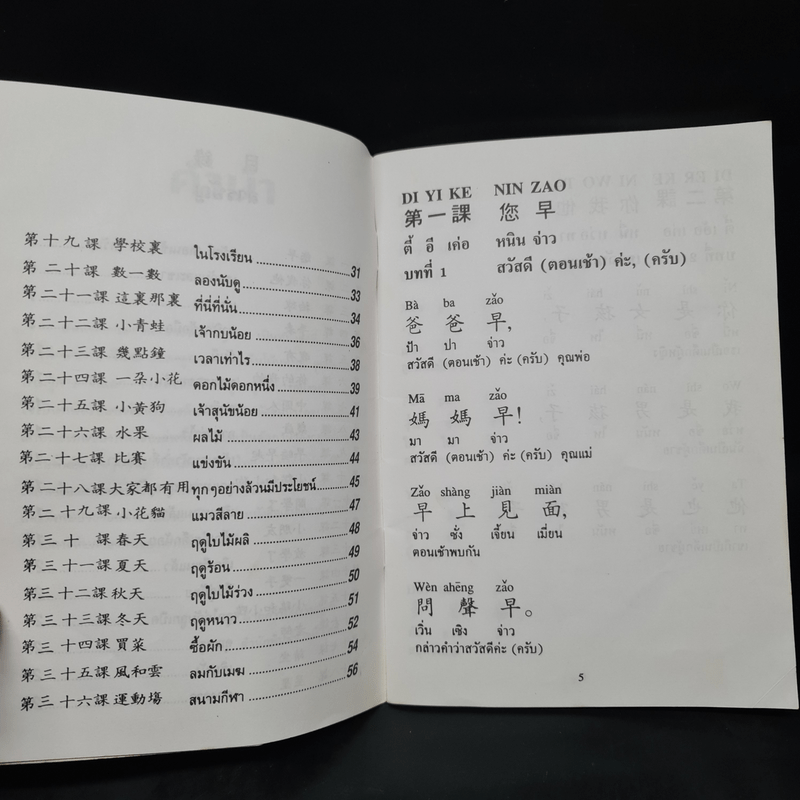 第十九課 學校裏 ในโรงเรียน 31
第二十課 數一數 ลองนับดู 33
第二十一課 這裏那裏 ที่นี่ที่นั่น 34
第二十二課 小青蛙 เจ้ากบน้อย 36
第二十三課 幾點鐘 เวลาเท่าไร 38
第二十四課 一朵小花 ดอกไม้ดอกหนึ่ง 39
第二十五課 小黃狗 เจ้าสุนัขน้อย 41
第二十六課 水果 ผลไม้ 43
第二十七課 比賽 แข่งขัน 44
第二十八課 大家都有用 ทุกๆอย่างล้วนมีประโยชน์ 45
第二十九課 小花貓 แมวสีลาย 47
第三十 課 春天 ฤดูใบไม้ผลิ 48
第三十一課 夏天 ฤดูร้อน 49
第三十二課 秋天 ฤดูใบไม้ร่วง 50
第三十三課 冬天 ฤดูหนาว 51
第三十四課 買菜 ซื้อผัก 52
第三十五課 風和雲 ลมกับเมฆ 54
第三十六課 運動塲 สนามกีฬา 56
DI YI KE NIN ZAO
第一課 您早
ตี้ อี เค่อ หนิน จ่าว
บทที่ 1 สวัสดี (ตอนเช้า) ค่ะ, (ครับ)
Bà ba zǎo
爸爸早,
ป้า ปา จ่าว
สวัสดี (ตอนเช้า) ค่ะ (ครับ) คุณพ่อ
Mā ma zǎo
媽媽早!
มา มา จ่าว
สวัสดี (ตอนเช้า) ค่ะ (ครับ) คุณแม่
Zǎo shàng jiàn miàn
早上見面,
จ่าว ซั่ง เจี้ยน เมี่ยน
ตอนเช้าพบกัน
Wèn ahēng zǎo
問聲早。
เวิ่น เซิง จ่าว
กล่าวคำว่าสวัสดีค่ะ (ครับ)
5